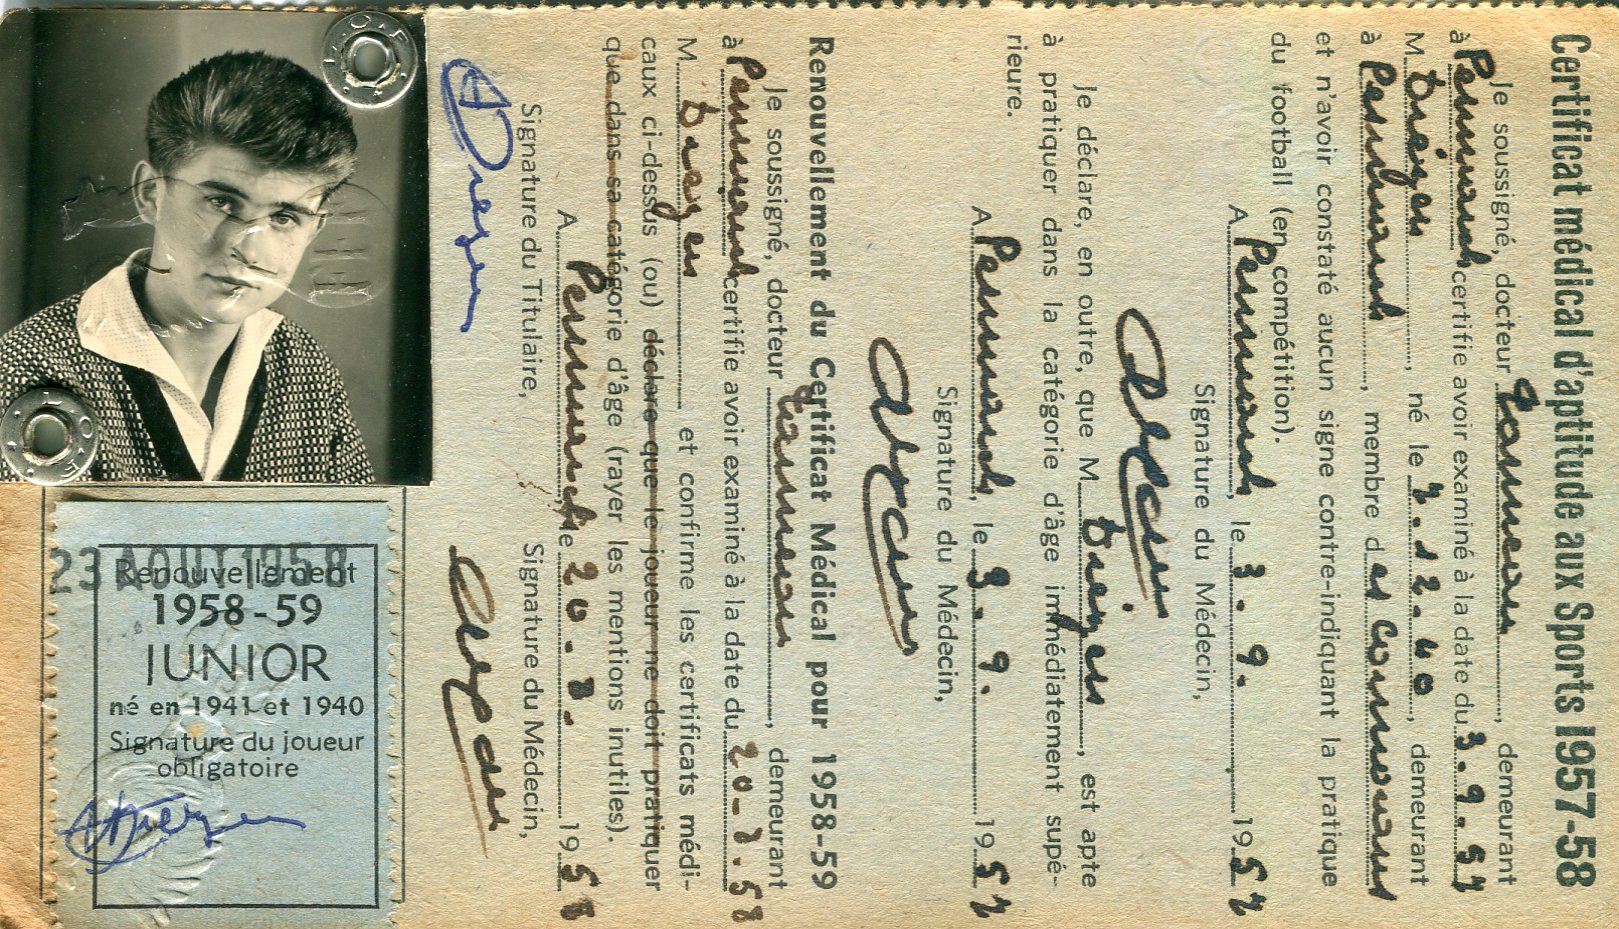 Certificat médical d'aptitude aux Sports 1957-58
Je soussigné, docteur, demeurant
à Penmarch certifie avoir examiné à la date du 3.9.57
M, né le 7.12.40, demeurant
à Penmarch, membre des Cormorans
et n'avoir constaté aucun signe contre-indiquant la pratique
du football (en compétition).
A Penmarch, le 3.9. 1957
Signature du Médecin,
Je déclare, en outre, que M, est apte
à pratiquer dans la catégorie d'âge immédiatement supé-
rieure.
A Penmarch, le 3.9. 1957
Signature du Médecin,
Renouvellement du Certificat Médical pour 1958-59
Je soussigné, docteur, demeurant
à Penmarch certifie avoir examiné à la date du
M, et confirme les certificats médi-
caux ci-dessus (ou) déclare que le joueur ne doit pratiquer
que dans sa catégorie d'âge (rayer les mentions inutiles).
A Penmarch le 20.8. 1958
Signature du Titulaire, Signature du Médecin,
23 AOUT 1958
Renouvellement
1958-59
JUNIOR
né en 1941 et 1940
Signature du joueur
obligatoire